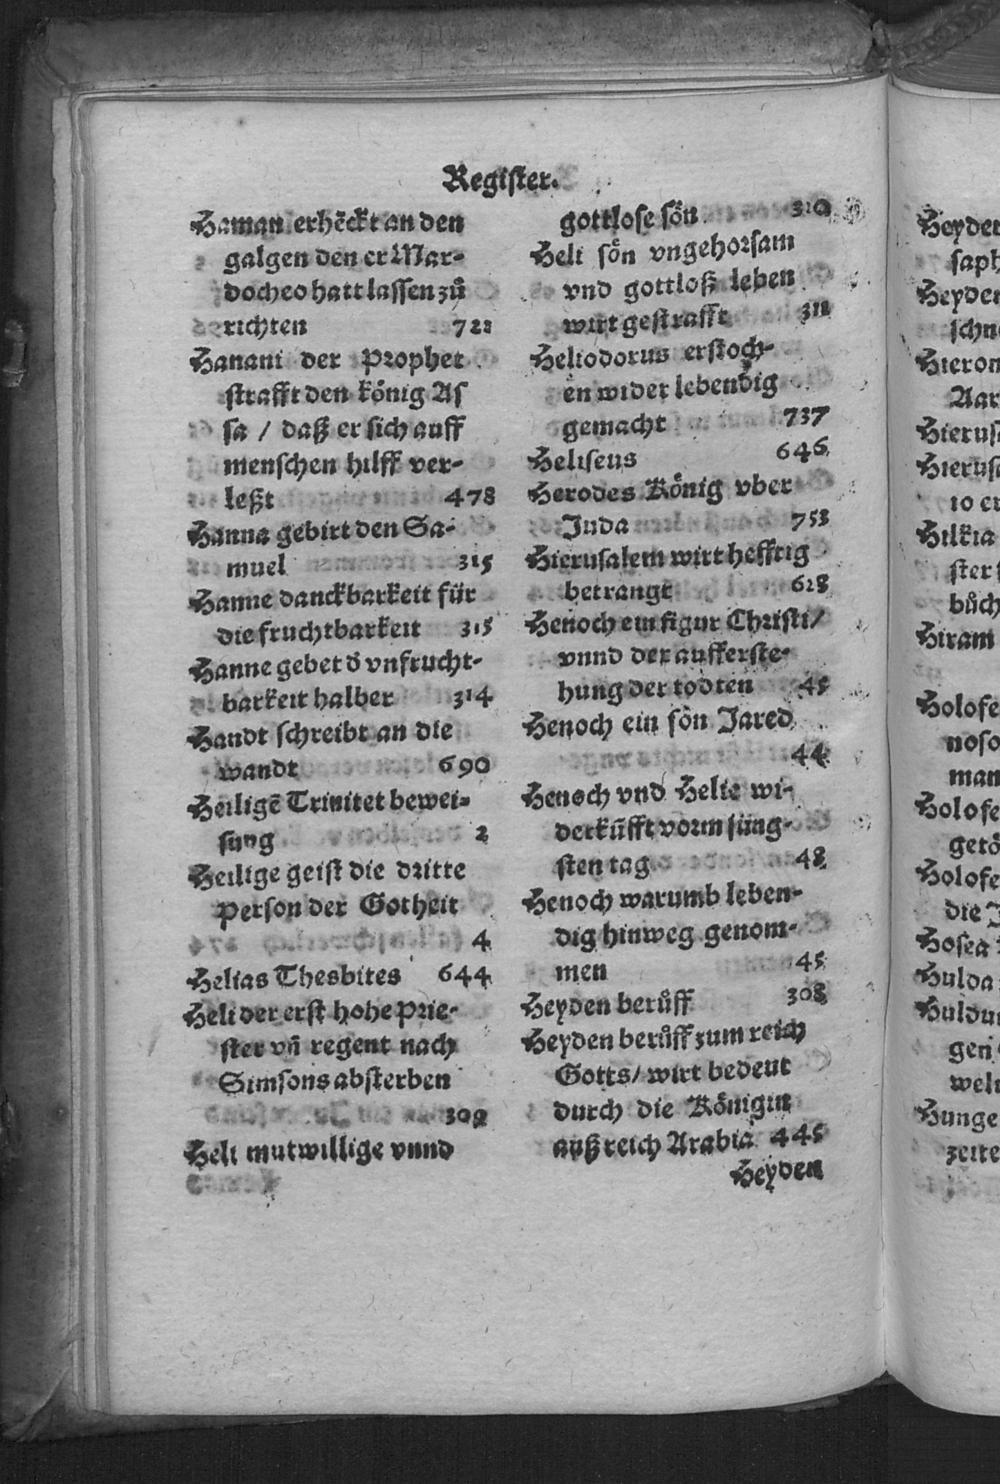 Register.
Haman erhēckt an den
galgen den er Mar-
docheo hatt lassen zů
richten 722
Hanani der Prophet
strafft den König As
sa / daß er sich auff
menschen hilff ver-
leßt 478
Hanna gebirt den Sa-
muel 315
Hanne danckbarkeit für
die fruchtbarkeit 315
Hanne gebet d̄ vnfrucht-
barkeit halber 314
Handt schreibt an die
wandt 690
Heiligē Trinitet bewei-
sung 2
Heilige geist die dritte
Person der Gotheit
4
Helias Thesbites 644
Heli der erst hohe Prie-
ster vn̄ regent nach
Simsons absterben
309
Heli mutwillige vnnd
gottlose sön 310
Heli sön vngehorsam
vnd gottloß leben
wirt gestrafft 311
Heliodorus erstoch-
en wider lebendig
gemacht 737
Heliseus 646
Herodes König vber
Juda 753
Hierusalem wirt hefftig
betrangt 628
Henoch ein figur Christi/
vnnd der aufferste-
hung der todten 45
Henoch ein sön Jared
44
Henoch vnd Helie wi-
derkūfft vorm jüng-
sten tag 48
Henoch warumb leben-
dig hinweg genom-
men 45
Heyden berůff 308
Heyden berůff zum reich
Gotts/ wirt bedeut
durch die Königin
auß reich Arabia 445
Heyden
Heyden
saph
Heyden
schn
Hieron
Aar
Hierus
Hierusa
10 er
Hilkia
ster
bůch
Hiram
Holofe
noso
man
Holofe
getö
Holofe
die J
Hosea
Hulda
Huldu
gen
welt
Hunge
zeite